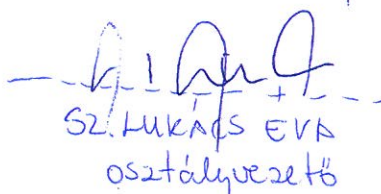 SZ. LUKÁCS ÉVA
osztályvezető